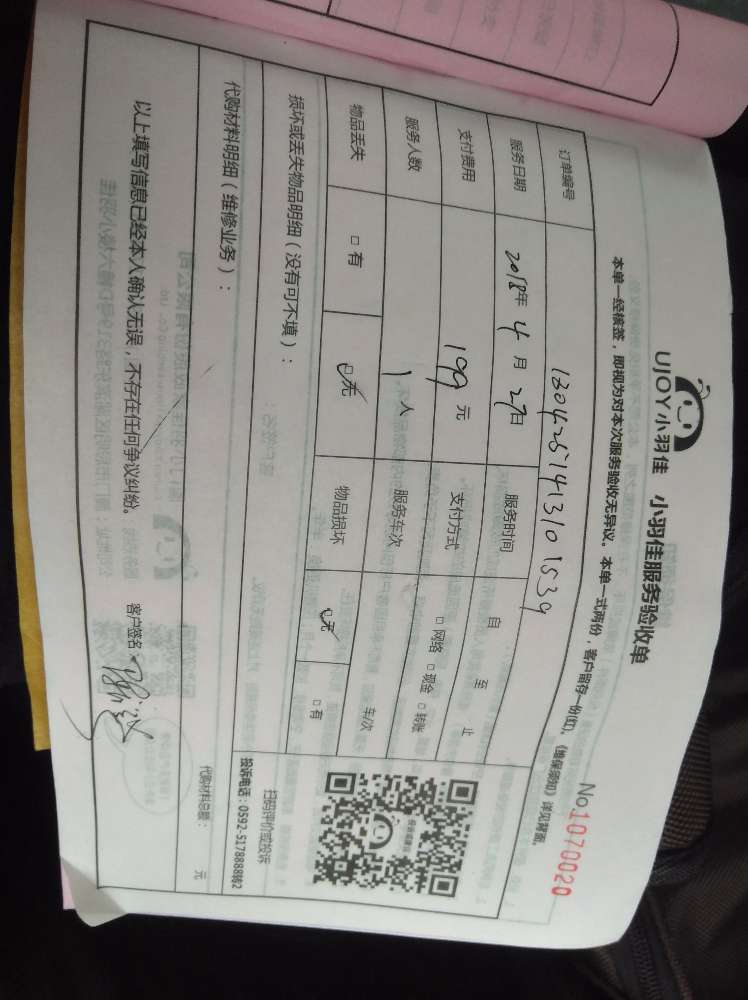 UJOY小羽佳 小羽佳服务验收单
No.1070020
本单一经核签，即视为对本次服务验收无异议。本单一式两份，客户留存一份(红)。《维保须知》详见背面。
订单编号 1804251413101539
服务日期 2018年 4 月 27日 服务时间 自 至 止
支付费用 199 元 支付方式 □ 网络 □ 现金 □ 转账
服务人数 1 人 服务车次 车/次
物品丢失 □ 有 ☑无 物品损坏 ☑无 □ 有
损坏或丢失物品明细（没有可不填）：
扫码评价或投诉
投诉电话：0592-5178888转2
代购材料明细（维修业务）：
代购材料总额： 元
以上填写信息已经本人确认无误，不存在任何争议纠纷。 客户签名：